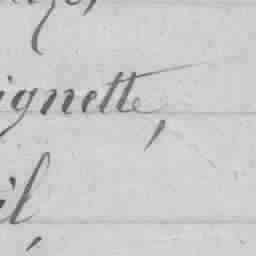 ignette,
il,